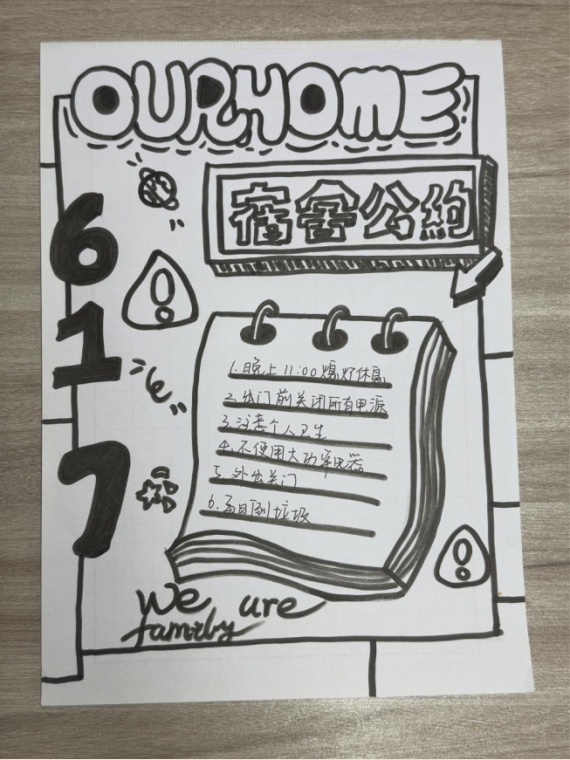 OUR HOME
宿舍公约
617
1.晚上11:00熄灯休息
2.出门前关闭所有电源
3.注意个人卫生
4.不使用大功率电器
5.外出关门
6.每日倒垃圾
we are
family